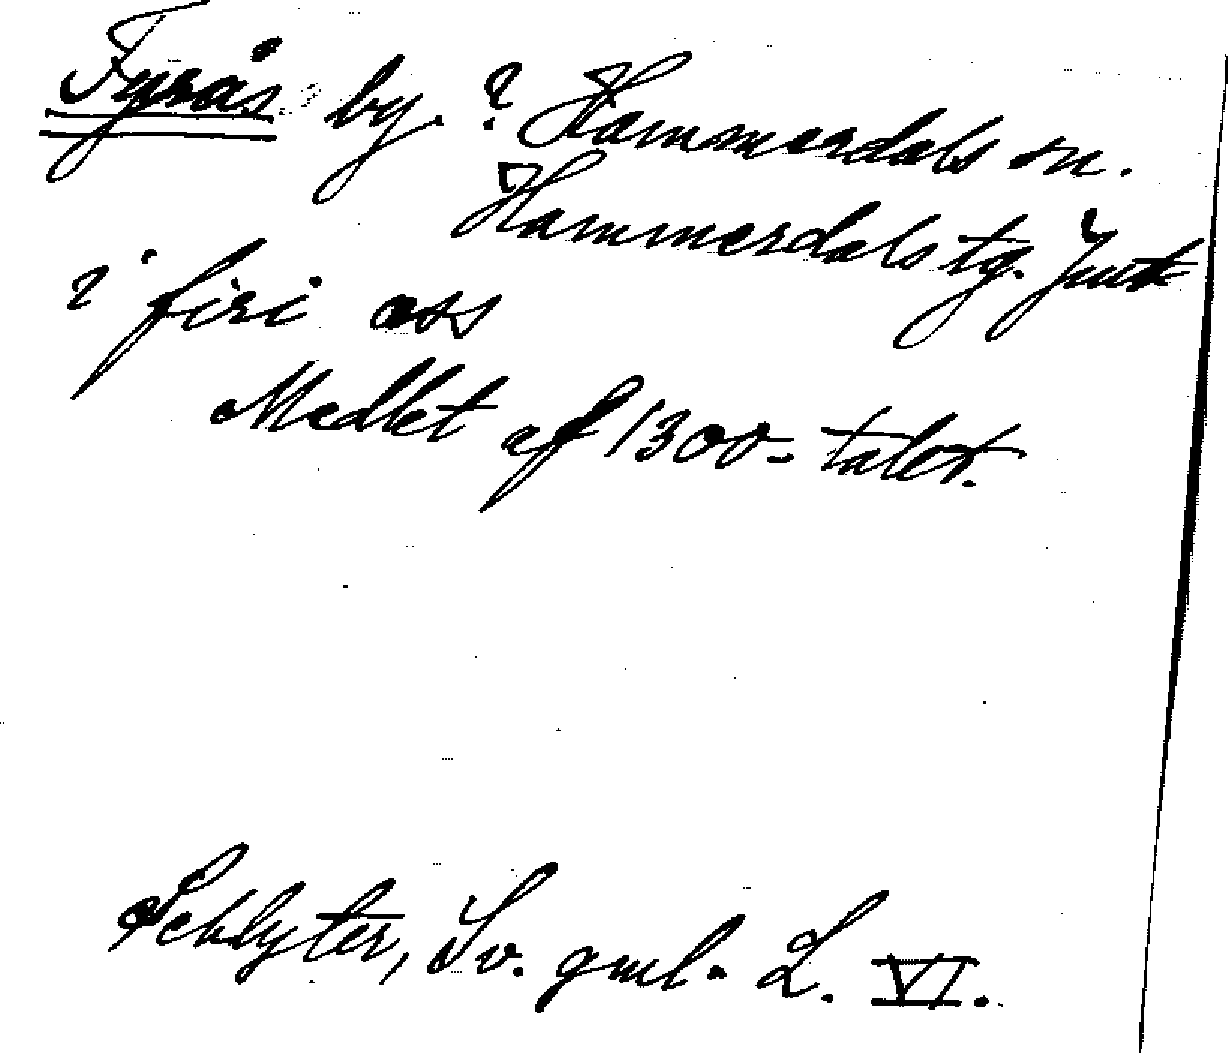 Fyrås by. ? Hammerdals sn.
Hammerdals tg. Jmtl
i firi ass
Medlet af 1300-talet.
Schlyter, Sv. gml. L. VI.